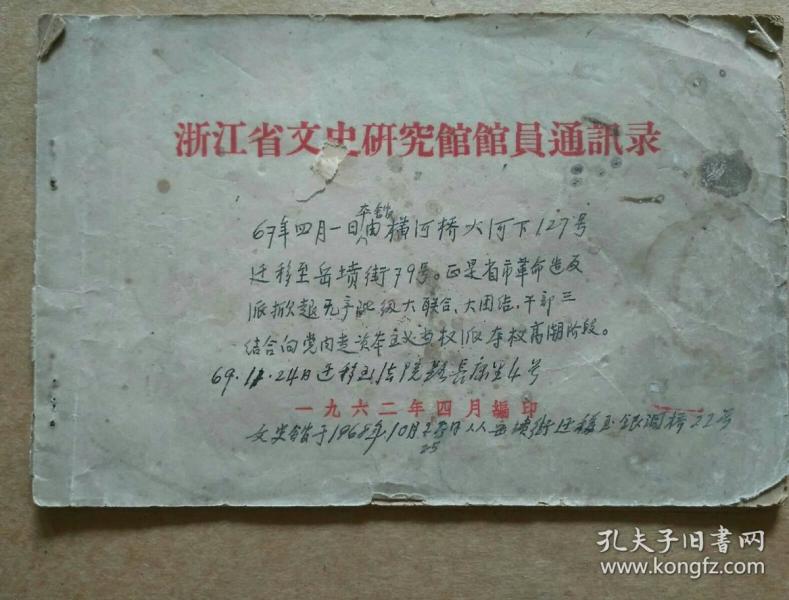 浙江省文史研究館館員通訊录
本館
67年四月一日由横河桥大河下127号
迁移至岳坟街79号。正是省市革命造反
派掀起无产阶级大联合、大团结、干部三
结合向党内走资本主义当权派夺权高潮阶段。
69.11.24日迁移到法院路长康里4号
一九六二年四月編印
文史馆于1968年10月 日从岳坟街迁移至银洞桥22号
25
孔夫子旧书网
www.kongfz.com